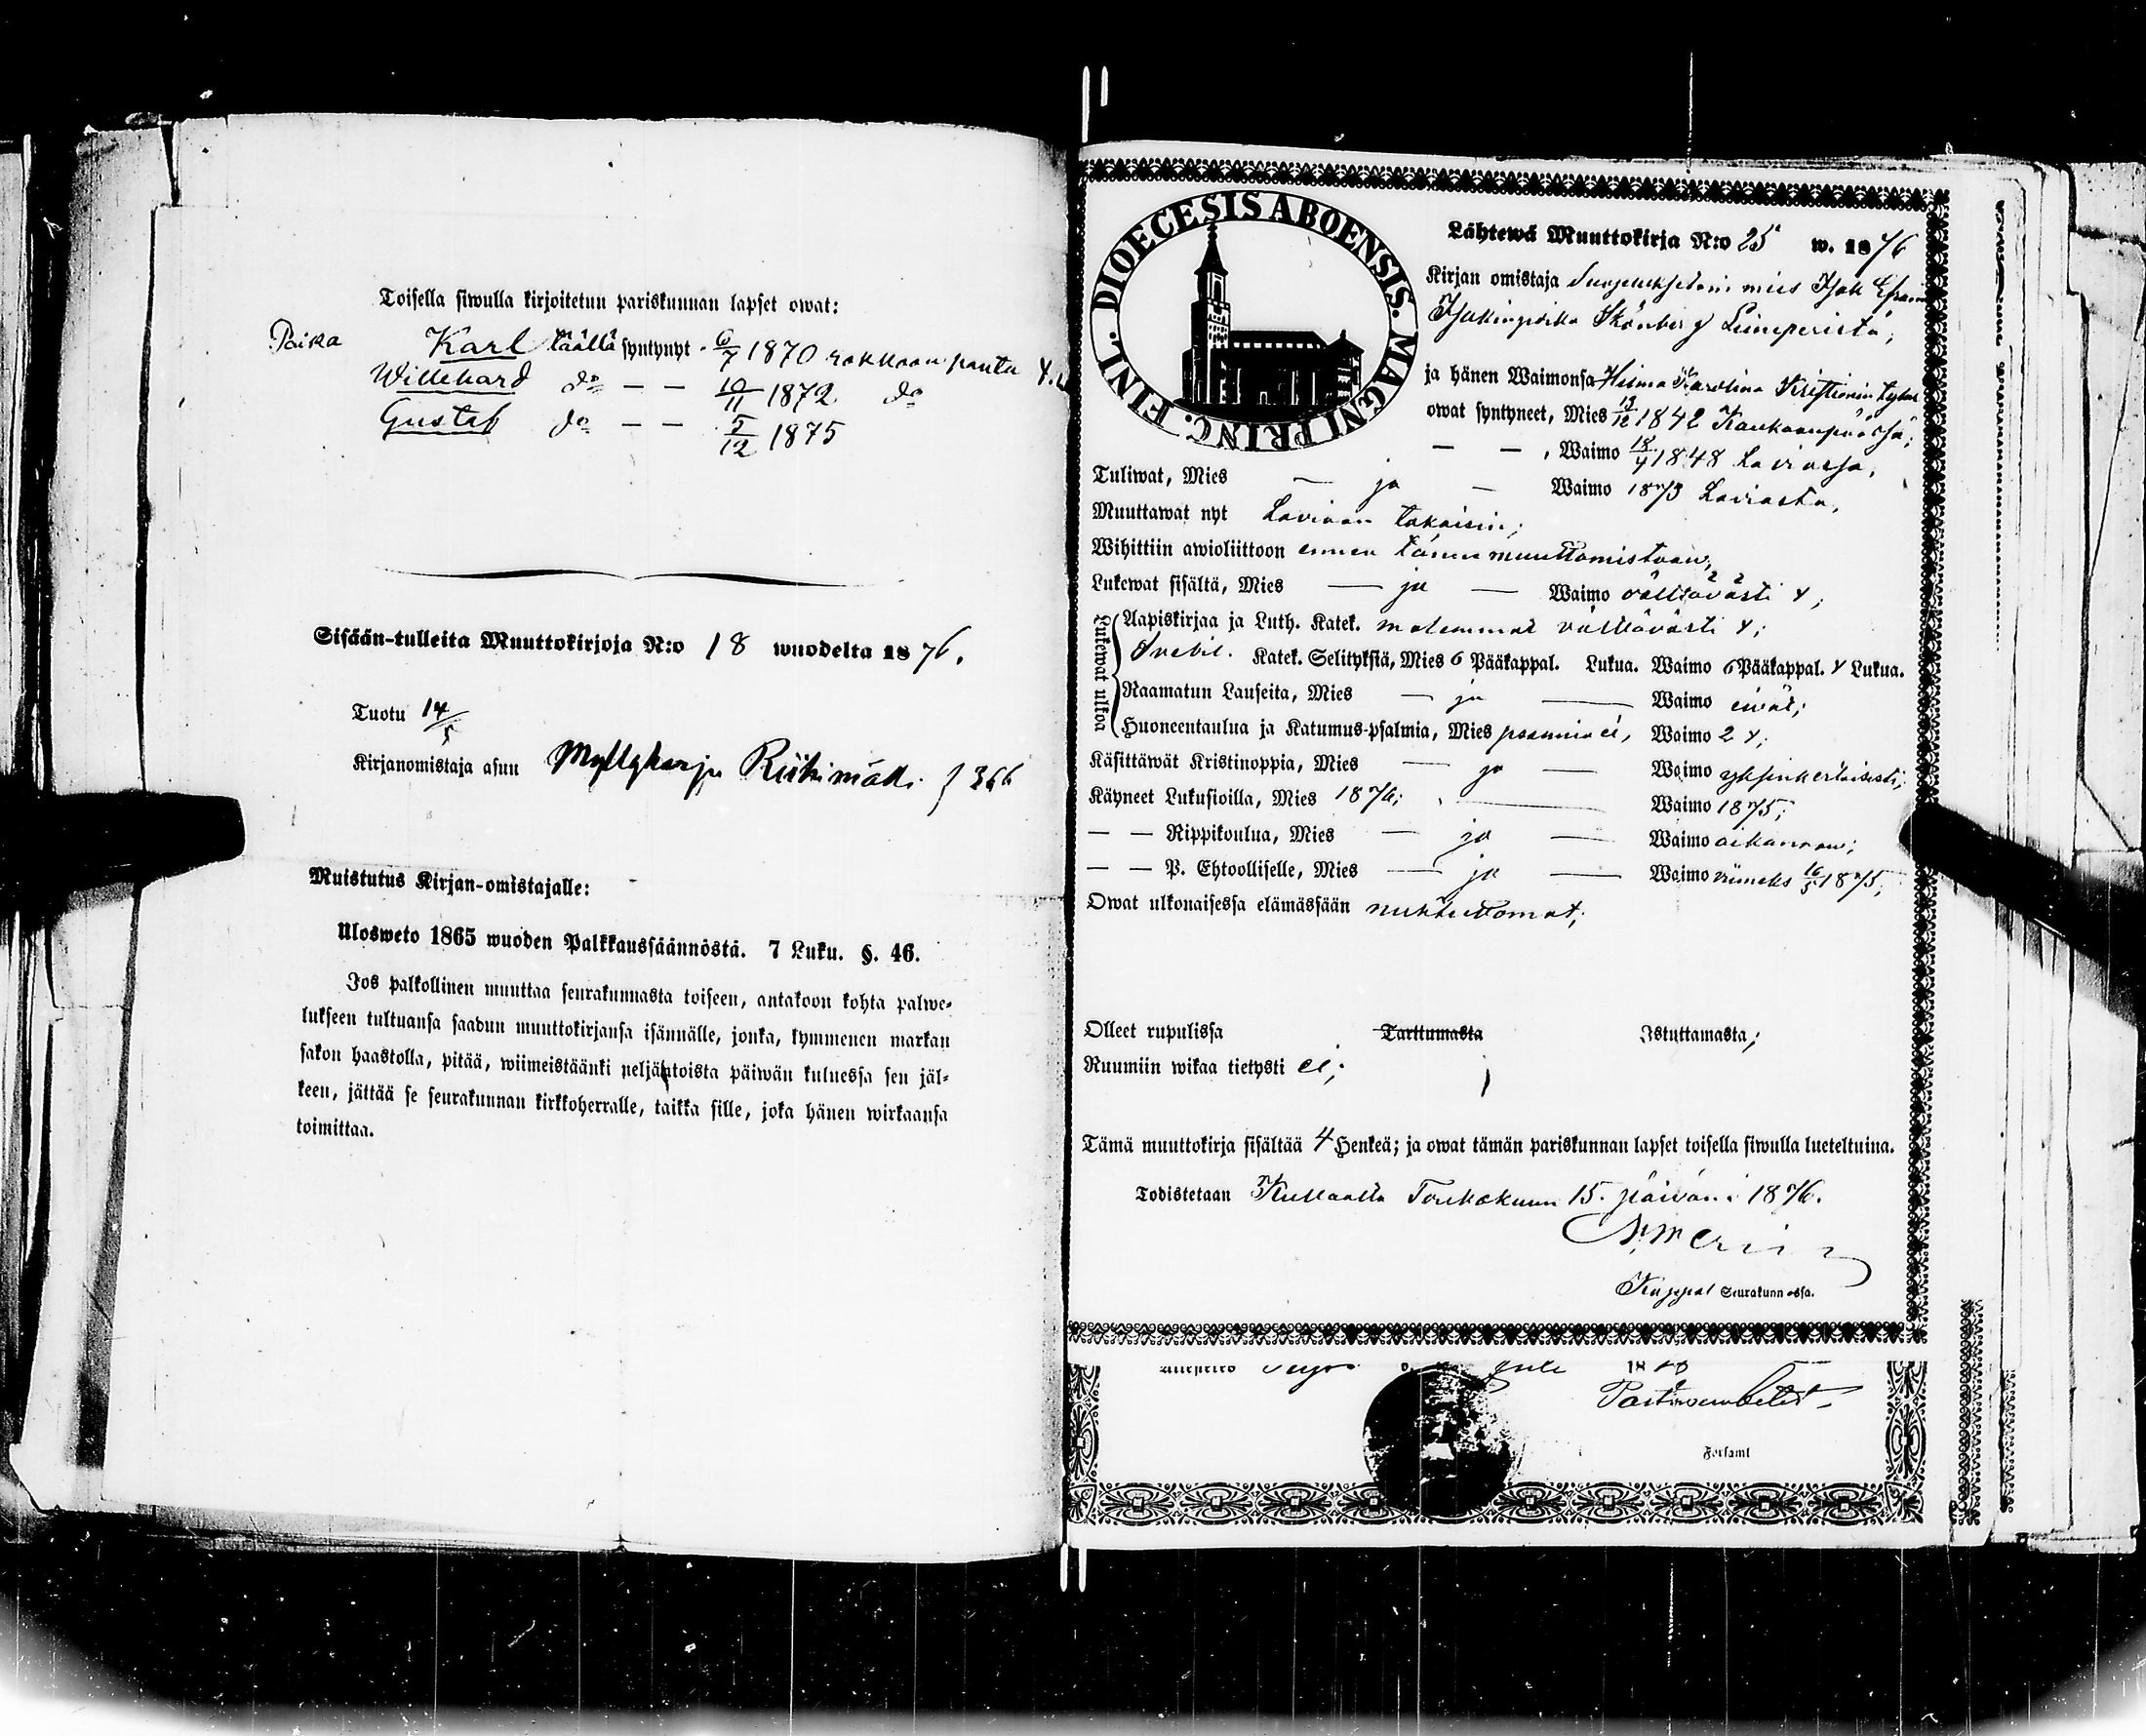 Toisella siwulla kirjoitetun pariskunnan lapset owat:
Poika Karl täällä syntynyt 6/7 1870 rokkoon pantu
Willehard do — — 10/11 1872 do
Gustaf do — — 5/12 1875
Sisään-tulleita Muuttokirjoja N:o 18 wuodelta 1876.
Tuotu 14/5
Kirjanomistaja asuu Myllyharju Riihimäki 366
Muistutus Kirjan-omistajalle:
Ulosweto 1865 wuoden Palkkaussäännöstä. 7 Luku. §. 46.
Jos palkollinen muuttaa seurakunnasta toiseen, antakoon kohta palwe-
lukseen tultuansa saadun muuttokirjansa isännälle, jonka, kymmenen markan
sakon haastolla, pitää, wiimeistäänki neljäntoista päiwän kuluessa sen jäl-
keen, jättää se seurakunnan kirkkoherralle, taikka sille, joka hänen wirkaansa
toimittaa.
DIOECESIS ABOENSIS. MAGNI PRINC. FINL.
Lähtewä Muuttokirja N:o 25 w. 1876
Kirjan omistaja mies Isak
Skönberg
ja hänen Waimonsa Hilma Karolina
owat syntyneet, Mies 19/12 1842 Kaukaanpäässä;
— — , Waimo 18/4 1848 Laviassa,
Tuliwat, Mies — ja — Waimo 1873 Laviasta,
Muuttawat nyt Laviaan takaisin;
Wihittiin awioliittoon ennen tänne muuttamistaan,
Lukewat sisältä, Mies — ja — Waimo välttävästi
Lukewat ulkoa
Aapiskirjaa ja Luth. Katek. molemmat välttävästi
Svebil. Katek. Selityksiä, Mies 6 Pääkappal. Lukua. Waimo 6 Pääkappal. Lukua.
Raamatun Lauseita, Mies — ja — Waimo eivät;
Huoneentaulua ja Katumus-psalmia, Mies ei, Waimo 2
Käsittäwät Kristinoppia, Mies — ja — Waimo yksinkertaisesti;
Käyneet Lukusioilla, Mies 1876; — Waimo 1875;
— — Rippikoulua, Mies — ja — Waimo aikanaan;
— — P. Ehtoolliselle, Mies — ja — Waimo viimeks 16/5 1875;
Owat ulkonaisessa elämässään nuhteettomat;
Olleet rupulissa Tarttumasta Istuttamasta;
Ruumiin wikaa tietysti ei;
Tämä muuttokirja sisältää 4 Henkeä; ja owat tämän pariskunnan lapset toisella siwulla lueteltuina.
Todistetaan Kullaalla Toukokuun 15. päivänä 1876.
Kappal Seurakunnassa.
18
Pastorsembetet
Forsaml